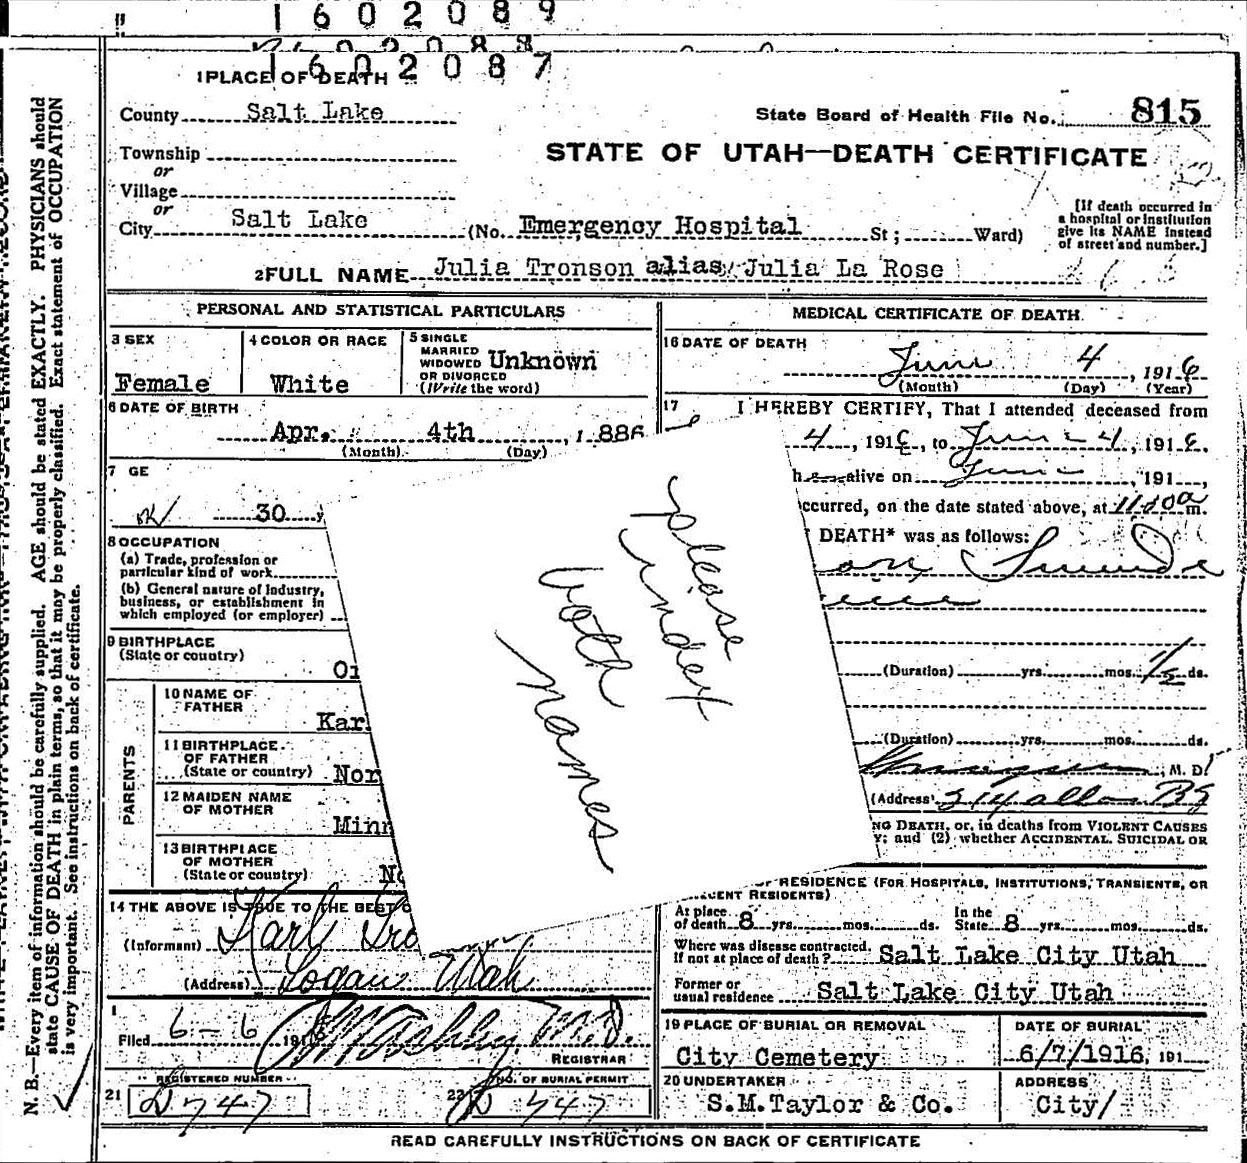 1602089
1602087
1 PLACE OF DEATH
County Salt Lake
State Board of Health File No. 815
Township
or
Village
or
City Salt Lake
STATE OF UTAH—DEATH CERTIFICATE
(No. Emergency Hospital St; Ward)
[If death occurred in
a hospital or institution
give its NAME instead
of street and number.]
2 FULL NAME Julia Tronson alias Julia La Rose
PERSONAL AND STATISTICAL PARTICULARS
3 SEX
Female
4 COLOR OR RACE
White
5 SINGLE
MARRIED
WIDOWED
OR DIVORCED
(Write the word)
Unknown
6 DATE OF BIRTH
Apr. 4th, 1886
(Month) (Day)
7 GE
30
8 OCCUPATION
(a) Trade, profession or
particular kind of work
(b) General nature of industry,
business, or establishment in
which employed (or employer)
9 BIRTHPLACE
(State or country)
PARENTS
10 NAME OF
FATHER
Kar
11 BIRTHPLACE
OF FATHER
(State or country)
Nor
12 MAIDEN NAME
OF MOTHER
Minn
13 BIRTHPLACE
OF MOTHER
(State or country)
14 THE ABOVE IS TRUE TO THE BEST O
(Informant) Karl Tro
(Address) Logan Utah
Filed 6-6 191
M.D.
REGISTRAR
21 REGISTERED NUMBER
D 747
22 NO. OF BURIAL PERMIT
D 747
please
index
both
names
MEDICAL CERTIFICATE OF DEATH
16 DATE OF DEATH
June 4, 1916
(Month) (Day) (Year)
17 I HEREBY CERTIFY, That I attended deceased from
4, 1916, to June 4, 1916.
h alive on June, 191
occurred, on the date stated above, at 11:50 a m.
DEATH* was as follows:
(Duration) yrs. mos. 1/2 ds.
(Duration) yrs. mos. ds.
M. D.
(Address)
NG DEATH, or, in deaths from VIOLENT CAUSES
; and (2) whether ACCIDENTAL, SUICIDAL OR
OF RESIDENCE (FOR HOSPITALS, INSTITUTIONS, TRANSIENTS, OR
CENT RESIDENTS)
At place
of death 8 yrs. mos. ds.
In the
State 8 yrs. mos. ds.
Where was disease contracted,
If not at place of death? Salt Lake City Utah
Former or
usual residence Salt Lake City Utah
19 PLACE OF BURIAL OR REMOVAL
City Cemetery
DATE OF BURIAL
6/7/1916, 191
20 UNDERTAKER
S.M.Taylor & Co.
ADDRESS
City/
READ CAREFULLY INSTRUCTIONS ON BACK OF CERTIFICATE
N. B.—Every item of information should be carefully supplied. AGE should be stated EXACTLY. PHYSICIANS should
state CAUSE OF DEATH in plain terms, so that it may be properly classified. Exact statement of OCCUPATION
is very important. See instructions on back of certificate.